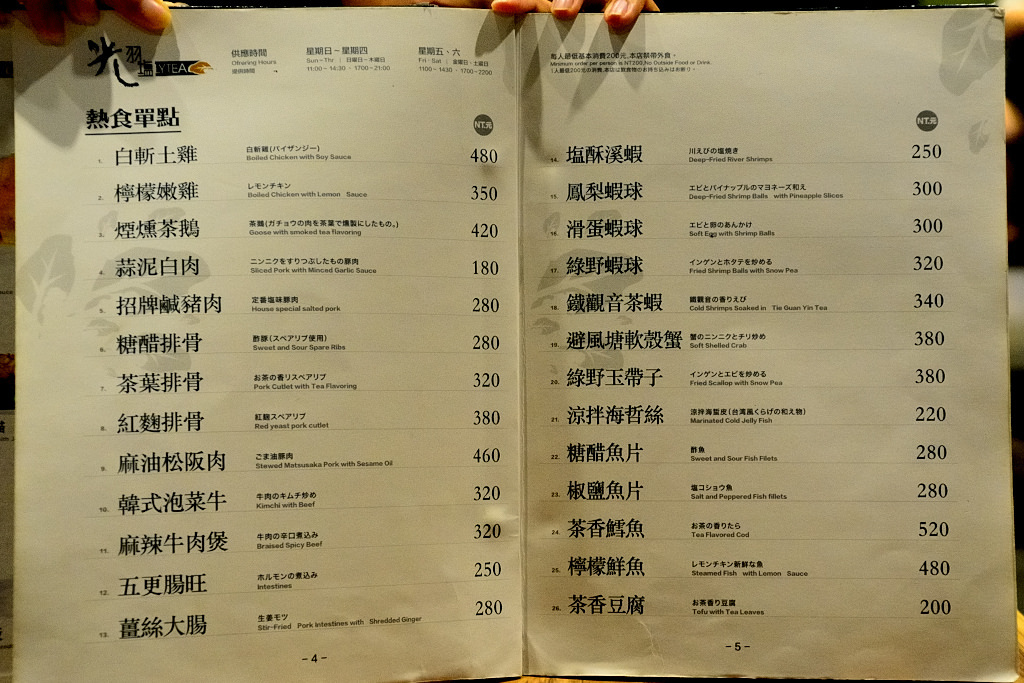 光羽塩 LYTEA
供應時間
Ofrering Hours
提供時間
星期日~星期四
Sun~Thr | 日曜日~木曜日
11:00~14:30 · 17:00~21:00
星期五、六
Fri · Sat | 金曜日 · 土曜日
1100~14:30 · 1700~2200
熱食單點
NT.元
1. 白斬土雞 白斬鶏(パイザンジー) 480
Boiled Chicken with Soy Sauce
2. 檸檬嫩雞 レモンチキン 350
Boiled Chicken with Lemon Sauce
3. 煙燻茶鵝 茶鵝(ガチョウの肉を茶葉で燻製にしたもの。) 420
Goose with smoked tea flavoring
4. 蒜泥白肉 ニンニクをすりつぶしたもの豚肉 180
Sliced Pork with Minced Garlic Sauce
5. 招牌鹹豬肉 定番塩味豚肉 280
House special salted pork
6. 糖醋排骨 酢豚(スペアリブ使用) 280
Sweet and Sour Spare Ribs
7. 茶葉排骨 お茶の香りスペアリブ 320
Pork Cutlet with Tea Flavoring
8. 紅麴排骨 紅麹スペアリブ 380
Red yeast pork cutlet
9. 麻油松阪肉 ごま油豚肉 460
Stewed Matsusaka Pork with Sesame Oil
10. 韓式泡菜牛 牛肉のキムチ炒め 320
Kimchi with Beef
11. 麻辣牛肉煲 牛肉の辛口煮込み 320
Braised Spicy Beef
12. 五更腸旺 ホルモンの煮込み 250
Intestines
13. 薑絲大腸 生姜モツ 280
Stir-Fried Pork Intestines with Shredded Ginger
-4-
每人最低基本消費200元,本店禁帶外食。
Minimum order per person is NT200,No Outside Food or Drink.
1人最低200元の消費,本店は飲食物のお持ち込みはお断り。
NT.元
14. 塩酥溪蝦 川えびの塩焼き 250
Deep-Fried River Shrimps
15. 鳳梨蝦球 エビとパイナップルのマヨネーズ和え 300
Deep-Fried Shrimp Balls with Pineapple Slices
16. 滑蛋蝦球 エビと卵のあんかけ 300
Soft Egg with Shrimp Balls
17. 綠野蝦球 インゲンとホタテを炒める 320
Fried Shrimp Balls with Snow Pea
18. 鐵觀音茶蝦 鐵觀音の香りえび 340
Cold Shrimps Soaked in Tie Guan Yin Tea
19. 避風塘軟殼蟹 蟹のニンニクとチリ炒め 380
Soft Shelled Crab
20. 綠野玉帶子 インゲンとエビを炒める 380
Fried Scallop with Snow Pea
21. 涼拌海哲絲 涼拌海蜇皮(台湾風くらげの和え物) 220
Marinated Cold Jelly Fish
22. 糖醋魚片 酢魚 280
Sweet and Sour Fish Filets
23. 椒鹽魚片 塩コショウ魚 280
Salt and Peppered Fish fillets
24. 茶香鱈魚 お茶の香りたら 520
Tea Flavored Cod
25. 檸檬鮮魚 レモンチキン新鮮な魚 480
Steamed Fish with Lemon Sauce
26. 茶香豆腐 お茶香り豆腐 200
Tofu with Tea Leaves
-5-